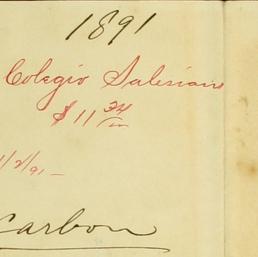 1891
Colegio Salesiano
$11 34/100
1/2/91 –
Carbon